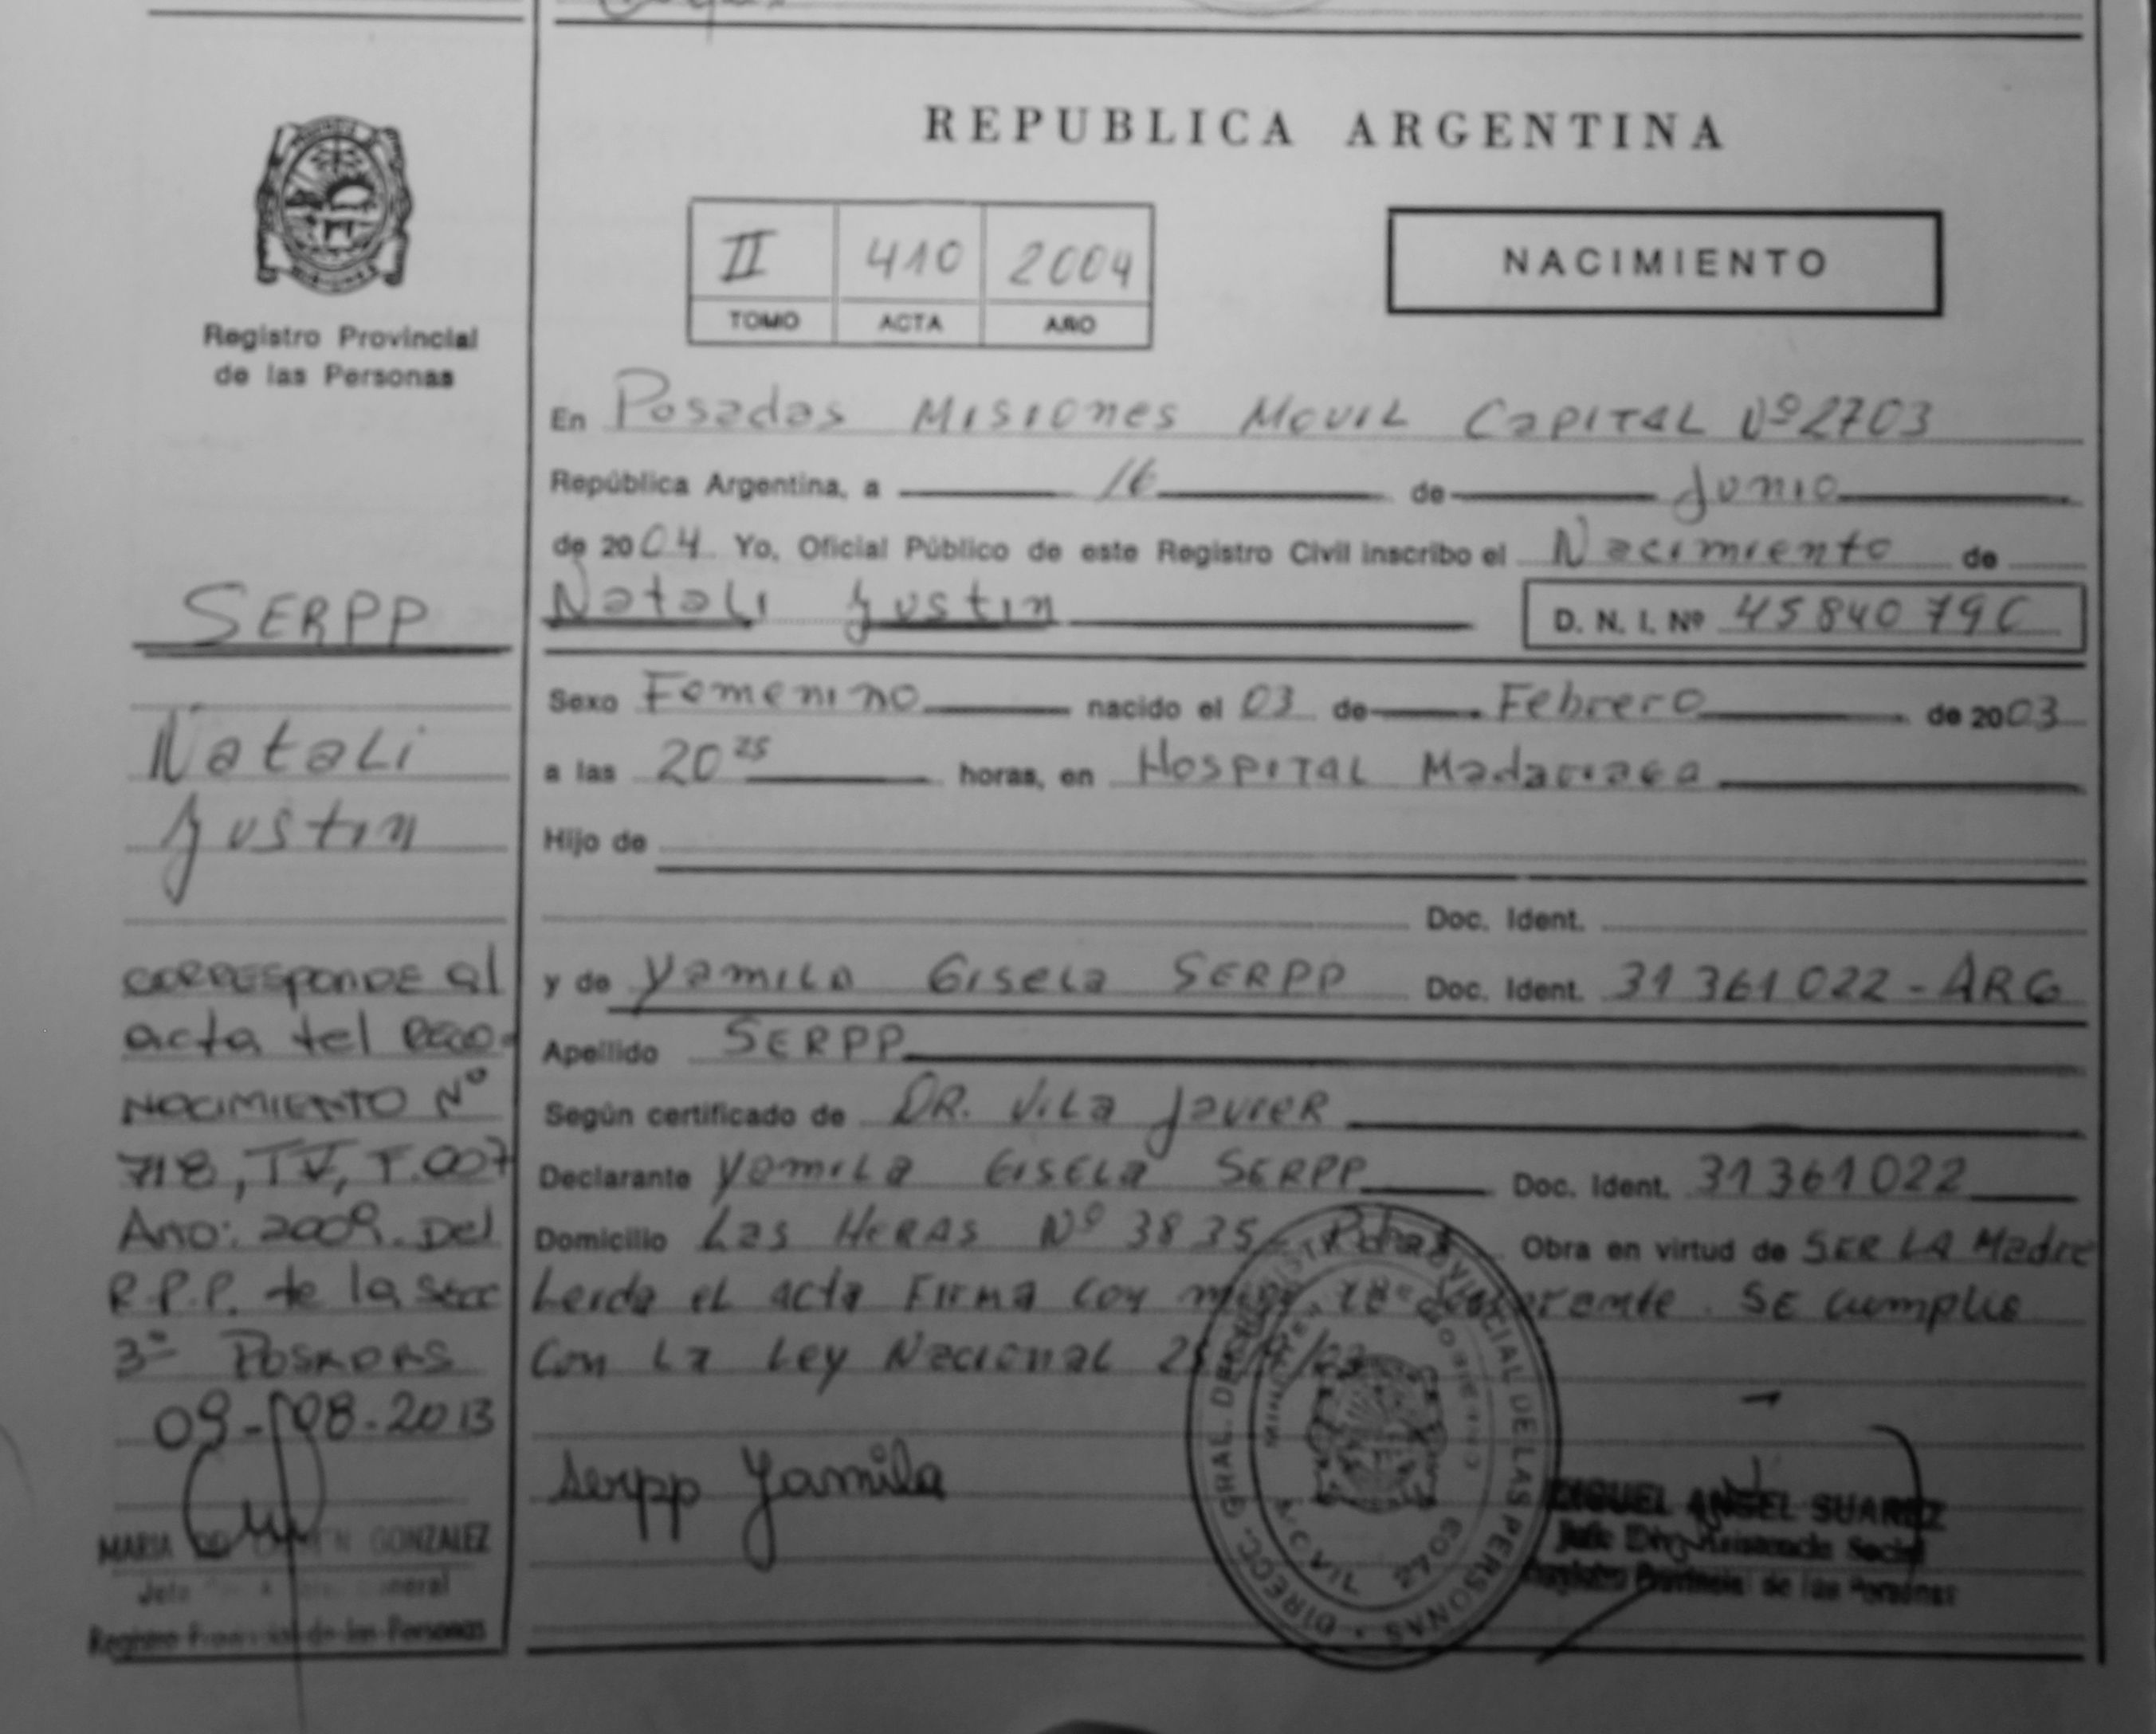 REPUBLICA ARGENTINA
II 410 2004
TOMO ACTA AÑO
NACIMIENTO
Registro Provincial
de las Personas
SERPP
Natali
Justin
CORRESPONDE al
acta del RECO-
NOCIMIENTO Nº
718, TV, F.007
Año: 2009. Del
R.P.P. de la Secc
3º POSADAS
09-08-2013
MARIA DEL CARMEN GONZALEZ
Registro Provincial de las Personas
En Posadas Misiones Movil Capital Nº 2703
República Argentina, a 16 de Junio
de 2004 Yo, Oficial Público de este Registro Civil inscribo el Nacimiento de
Natali Justin D. N. I. Nº 45840796
Sexo Femenino nacido el 03 de Febrero de 2003
a las 20 25 horas, en Hospital Madariaga
Hijo de
Doc. Ident.
y de Yamila Gisela SERPP Doc. Ident. 31 361 022 - ARG
Apellido SERPP
Según certificado de DR. Vila Javier
Declarante Yamila Gisela SERPP Doc. Ident. 31 361 022
Domicilio Las HERAS Nº 3835 - Pdas Obra en virtud de SER LA Madre
Leida el acta Firma con SE cumplio
Con La Ley Nacional
Serpp Yamila
DIRECC. GRAL. DEL REGISTRO PROVINCIAL DE LAS PERSONAS
MIGUEL ANGEL SUAREZ
Registro Provincial de las Personas